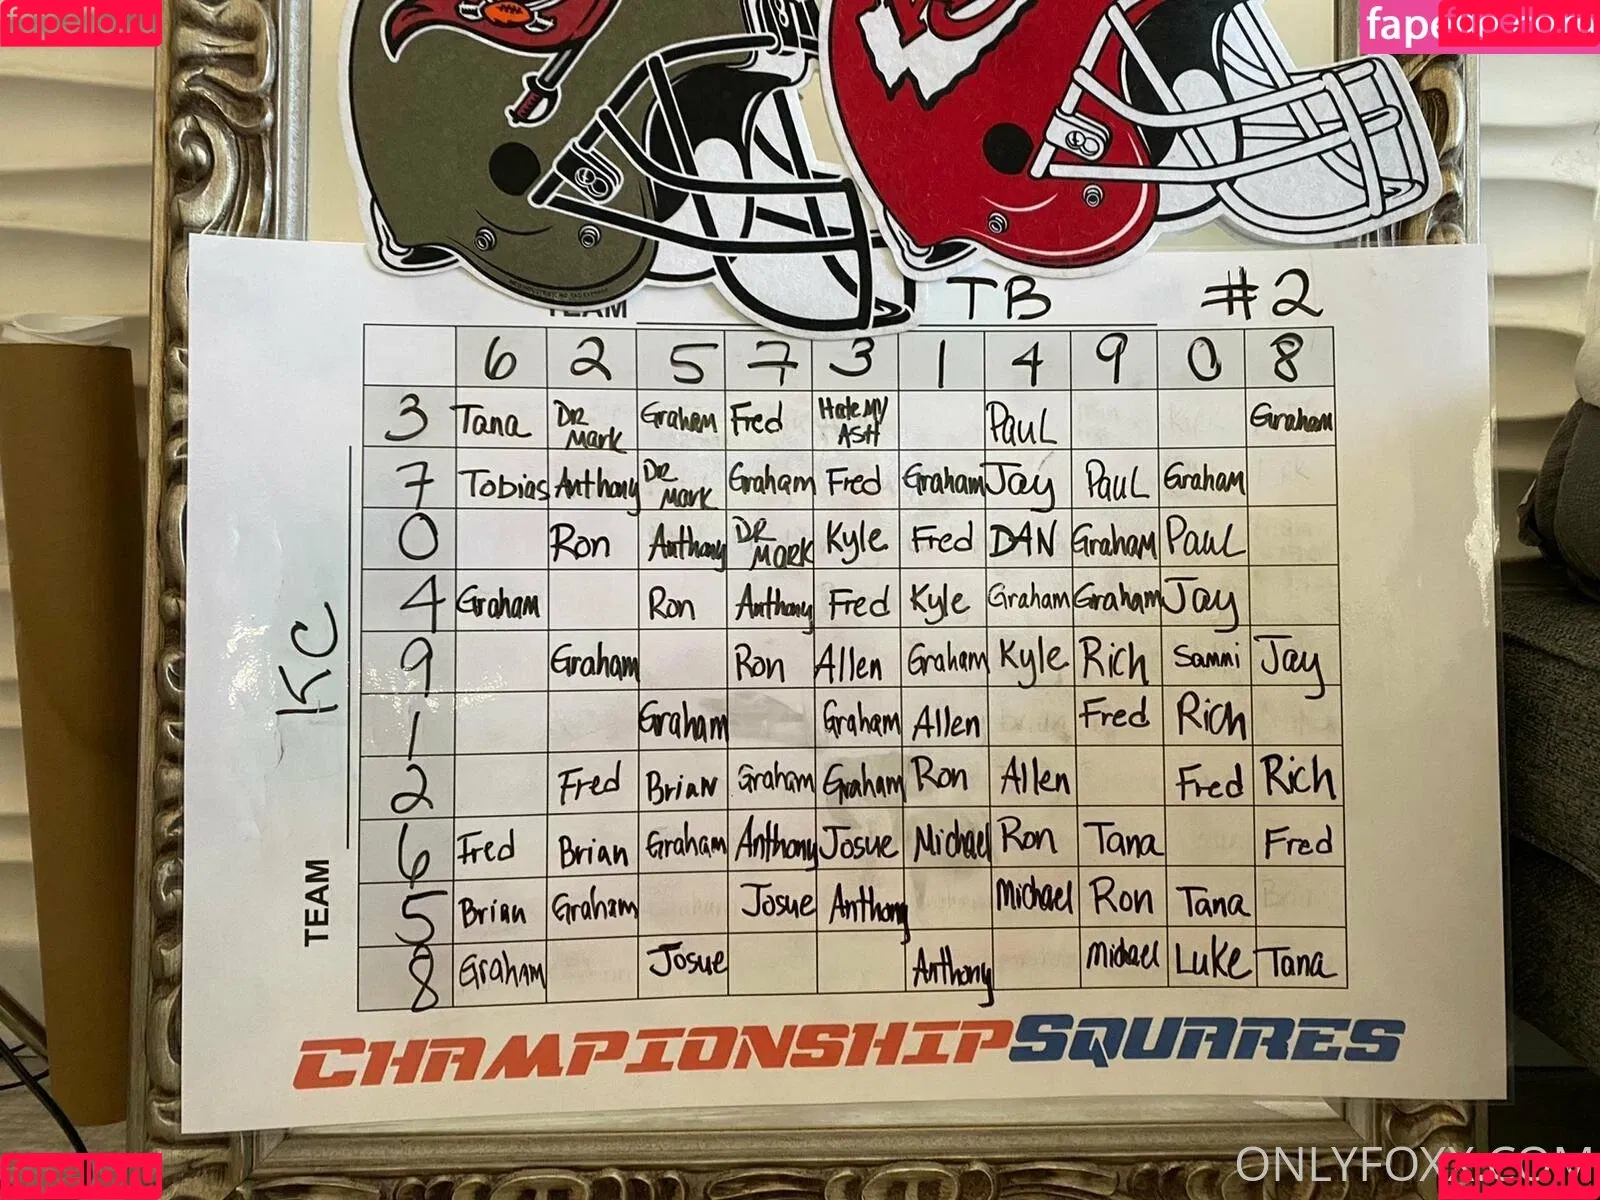 fapello.ru
fape
fapello.ru
TEAM
TB
#2
6 2 5 7 3 1 4 9 0 8
3 Tana DR Mark Graham Fred Hate My ASH Paul Graham
7 Tobias Anthony DR Mark Graham Fred Graham Jay Paul Graham
0 Ron Anthony DR MARK Kyle Fred DAN Graham Paul
4 Graham Ron Anthony Fred Kyle Graham Graham Jay
9 Graham Ron Allen Graham Kyle Rich Sammi Jay
1 Graham Graham Allen Fred Rich
2 Fred Brian Graham Graham Ron Allen Fred Rich
6 Fred Brian Graham Anthony Josue Michael Ron Tana Fred
5 Brian Graham Josue Anthony Michael Ron Tana
8 Graham Josue Anthony Michael Luke Tana
KC
TEAM
CHAMPIONSHIPSQUARES
ONLYFOX
.COM
fapello.ru
fapello.ru